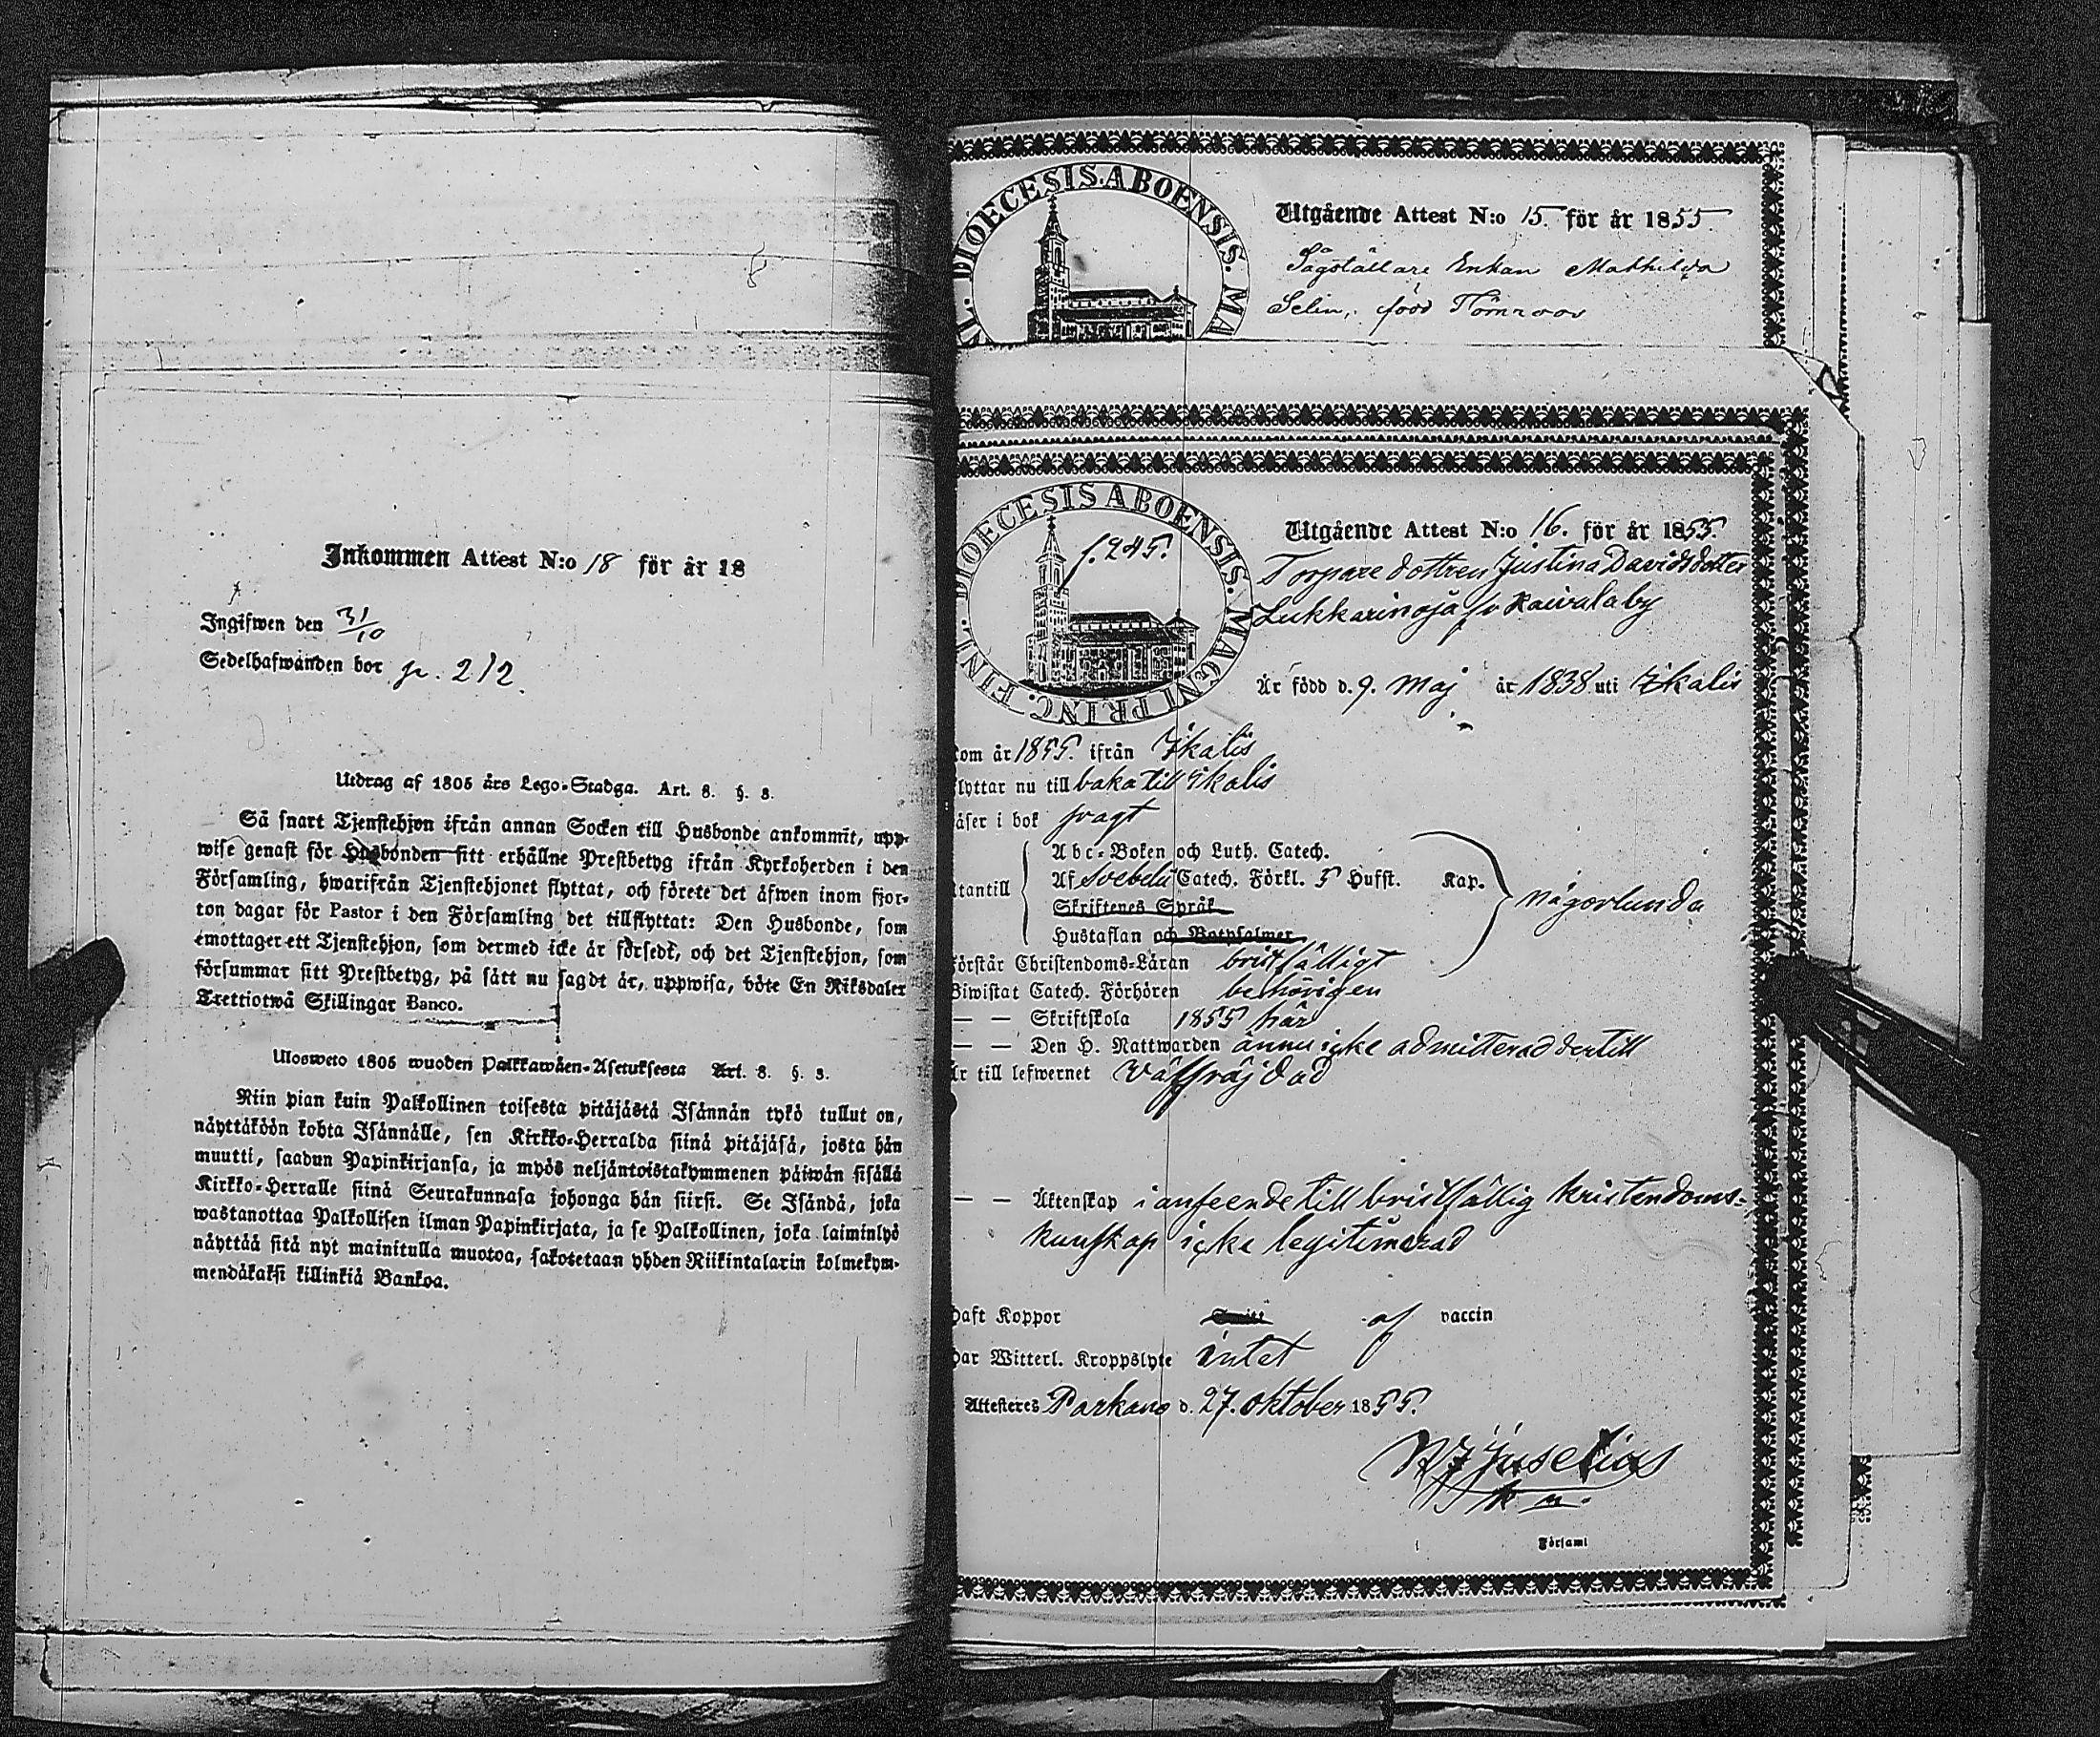 Inkommen Attest N:o 18 för år 18
Ingifwen den 31/10
Sedelhafwanden bor p. 212.
Utdrag af 1805 års Lego-Stadga. Art. 8. §. 8.
Så snart Tjenstehjon ifrån annan Socken till Husbonde ankommit, upp-
wise genast för Husbonden sitt erhållne Prestbetyg ifrån Kyrkoherden i den
Församling, hwarifrån Tjenstehjonet flyttat, och förete det äfwen inom fjor-
ton dagar för Pastor i den Församling det tillflyttat: Den Husbonde, som
emottager ett Tjenstehjon, som dermed icke är försedt, och det Tjenstehjon, som
försummar sitt Prestbetyg, på sätt nu sagdt är, uppwisa, böte En Riksdaler
Trettiotwå Skillingar Banco.
Ulosweto 1805 wuoden Palkkawäen-Asetuksesta Art. 8. §. 8.
Niin pian kuin Palkollinen toisesta pitäjästä Isännän tykö tullut on,
näyttäköön kohta Isännälle, sen Kirkko-Herralda siinä pitäjäsä, josta hän
muutti, saadun Papinkirjansa, ja myös neljäntoistakymmenen päiwän sisällä
Kirkko-Herralle siinä Seurakunnasa johonga hän siirsi. Se Isändä, joka
wastanottaa Palkollisen ilman Papinkirjata, ja se Palkollinen, joka laiminlyö
näyttää sitä nyt mainitulla muotoa, sakotetaan yhden Riikintalarin kolmekym-
mendäkaksi killinkiä Bankoa.
DIOECESIS ABOENSIS. MA
Utgående Attest N:o 15. för år 1855
Sågställare Enkan Mathilda
Selin, född Törnroos
FINL. DIOECESIS ABOENSIS. MAGNI PRINC.
f. 245.
Utgående Attest N:o 16. för år 1855.
Torpare dottren Justina Davidsdotter
Lukkarinoja fr Kaivalaby
Är född d. 9. Maj år 1838 uti Ikalis
om år 1855. ifrån Ikalis
lyttar nu till baka till Ikalis
äser i bok svagt
tantill
Abc-Boken och Luth. Catech.
Af Svebelii Catech. Förkl. 5 Hufst. Kap.
Skriftenes Språk
Hustaflan och Botpsalmer
någorlunda
örstår Christendoms-Läran bristfälligt
Biwistat Catech. Förhören behörigen
— — Skriftskola 1855 här
— — Den H. Nattwarden ännu icke admitterad dertill
r till lefwernet välfräjdad
— — Äktenskap i anseende till bristfällig kristendoms-
kunskap icke legitimerad
haft Koppor af vaccin
har Witterl. Kroppslyte intet
Attesteres Parkano d. 27. oktober 1855.
Juselius
Församl